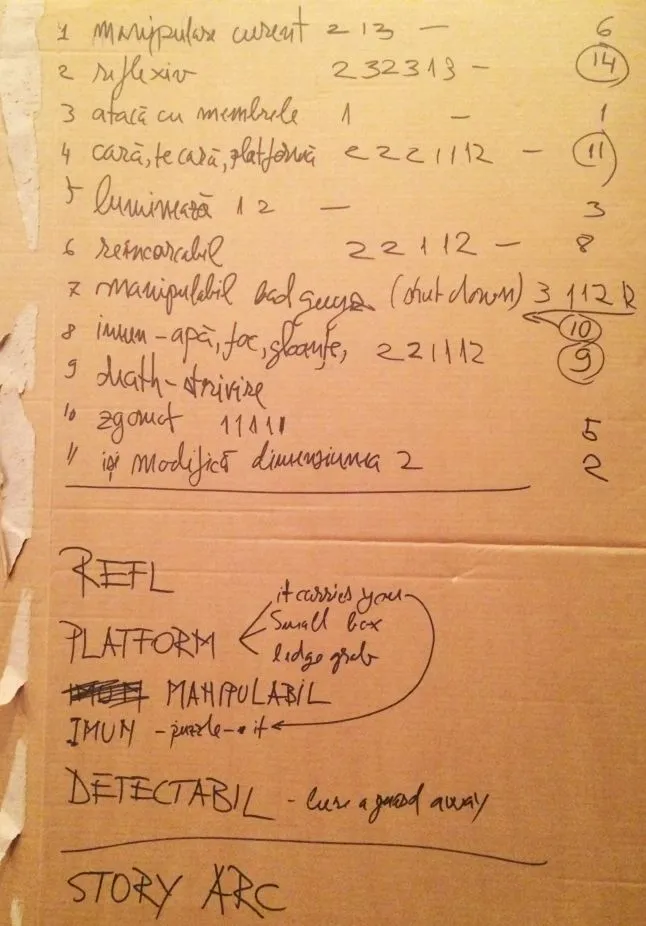 1 manipulare curent 2 1 3 — 6
2 reflexiv 2 3 2 3 1 3 — 14
3 atacă cu membrele 1 — 1
4 cară, te cară, platformă 2 2 2 1 1 1 2 — 11
5 luminează 1 2 — 3
6 reincarcabil 2 2 1 1 2 — 8
7 manipulabil bad guys (shut down) 3 1 1 2
10
8 imun - apă, foc, gloanțe, 2 2 1 1 1 2 9
9 death - strivire
10 zgomot 1 1 1 1 1 5
11 iși modifică dimensiunea 2 2
REFL
it carries you
PLATFORM < Small box
ledge grab
MANIPULABIL
IMUN - puzzle - it
DETECTABIL - lure a guard away
STORY ARC